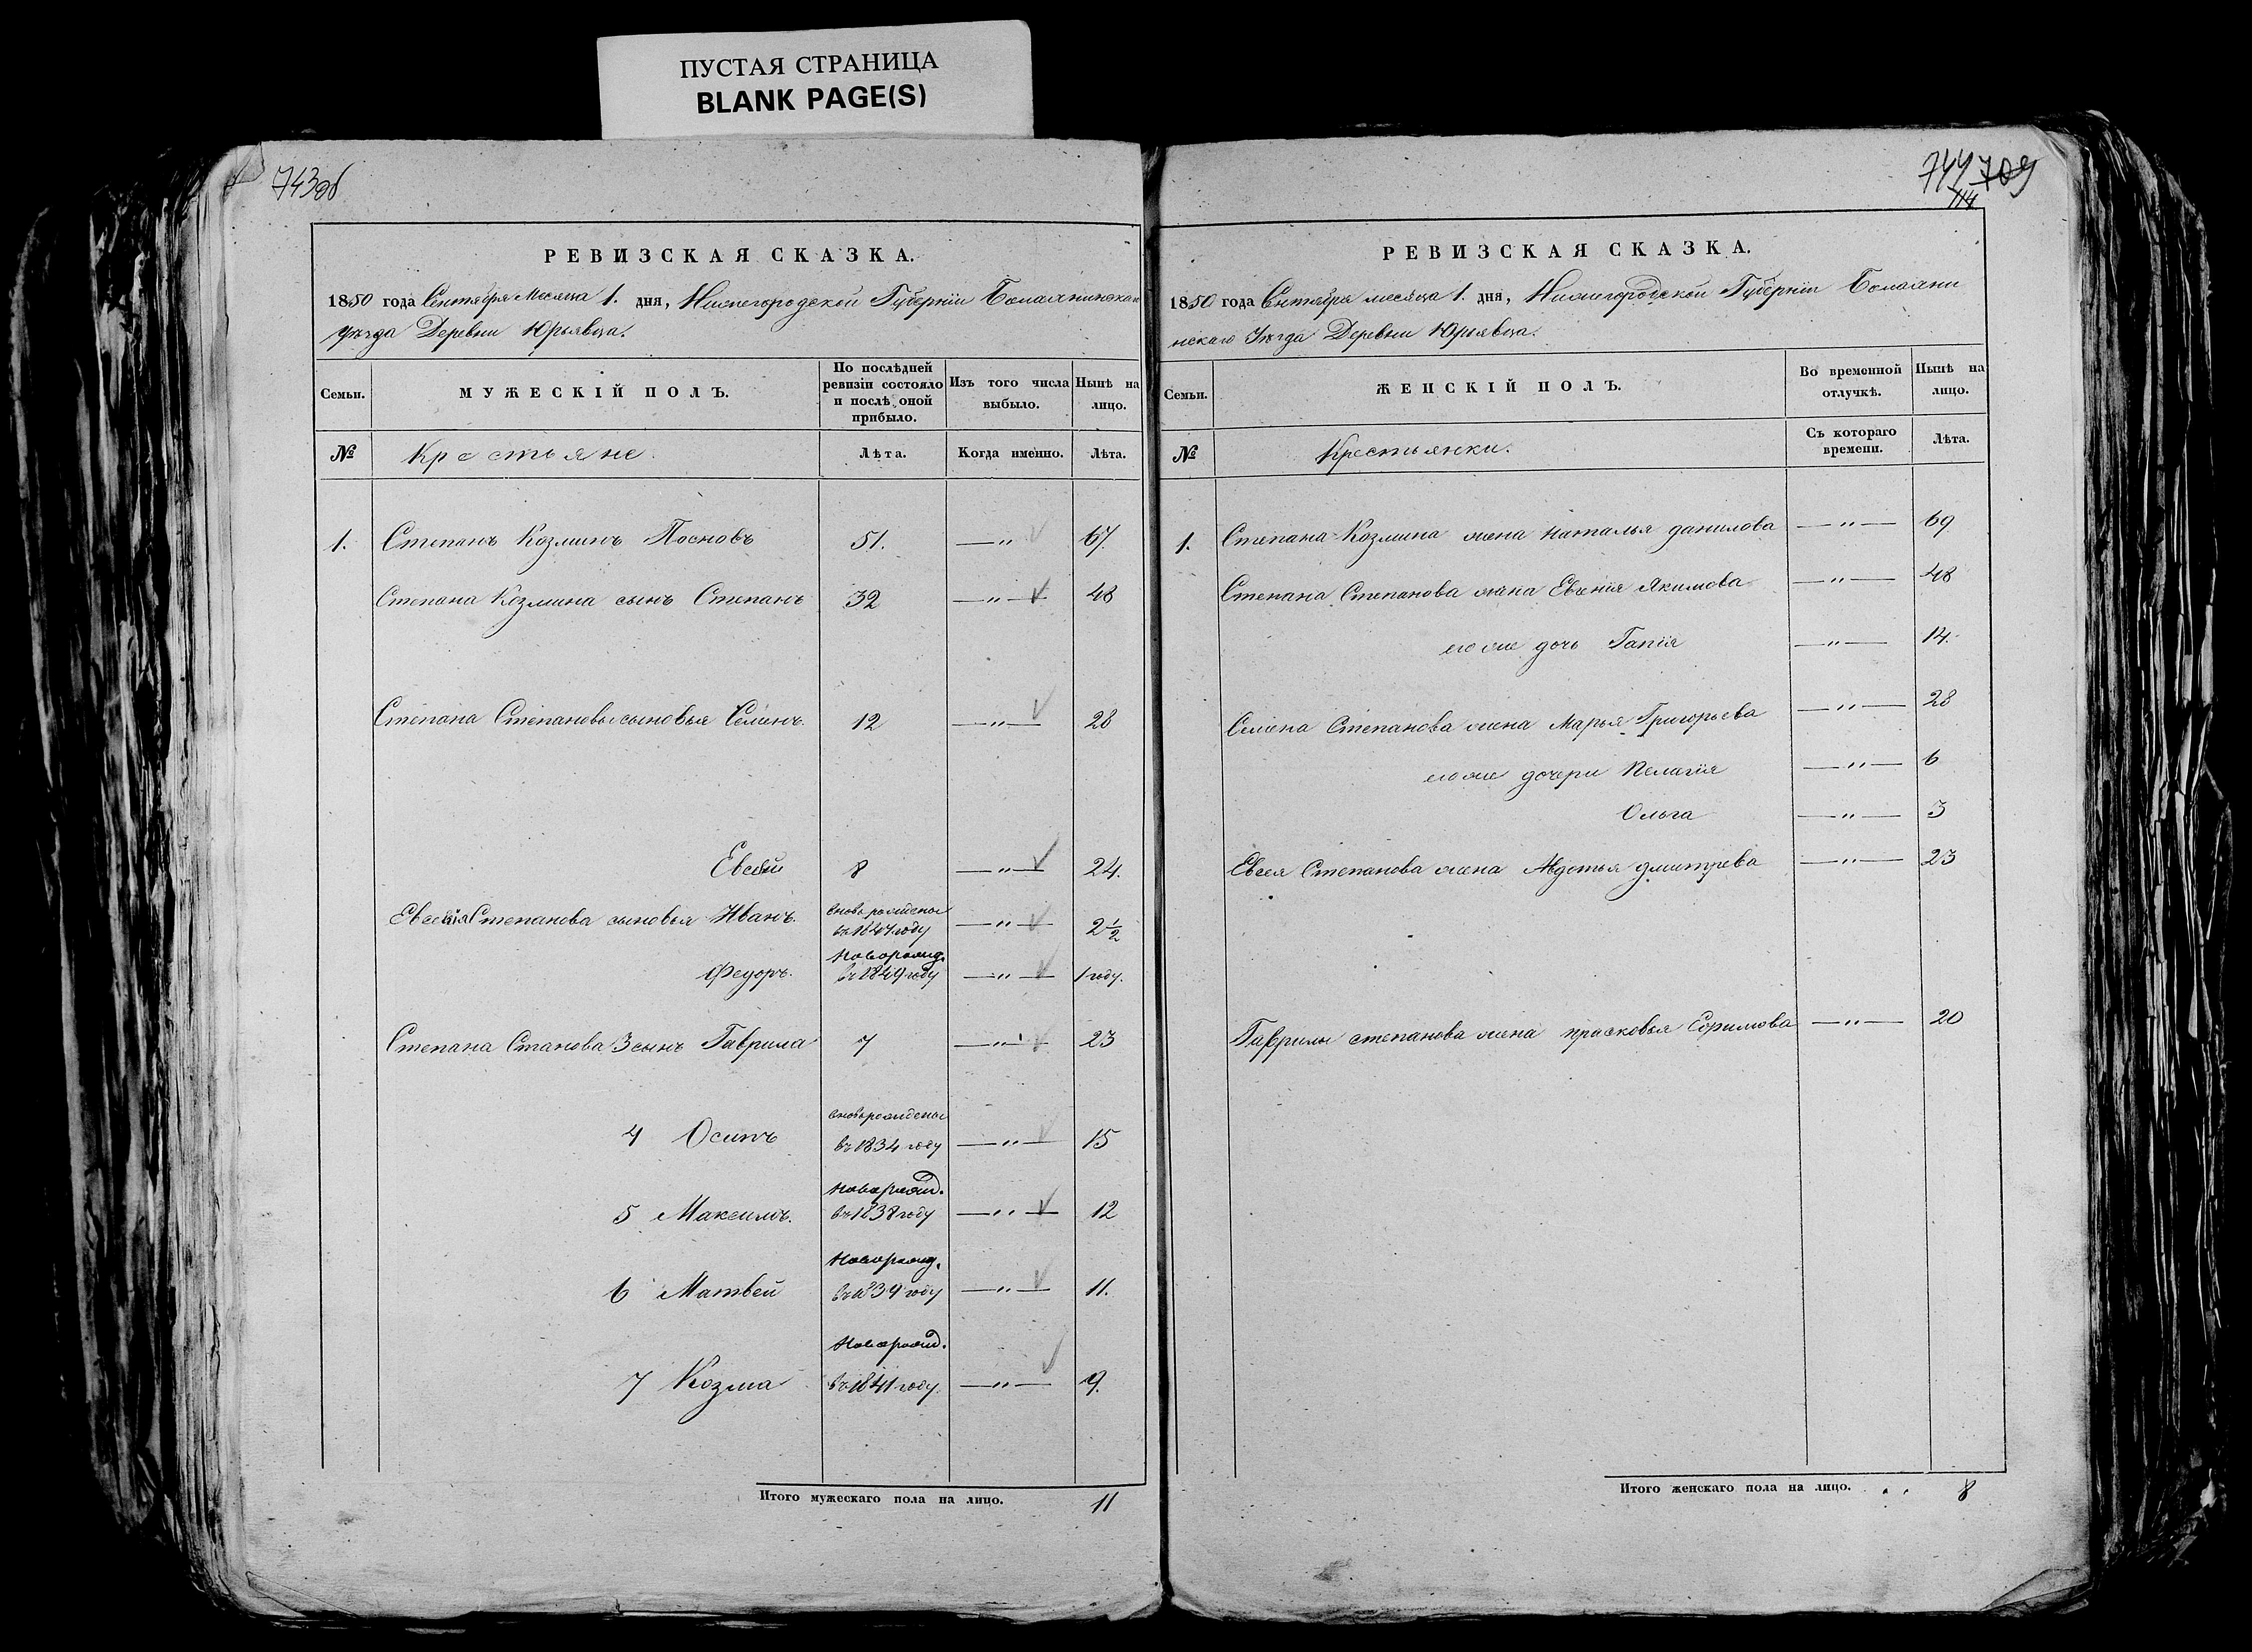 ПУСТАЯ СТРАНИЦА
BLANK PAGE(S)
743об
РЕВИЗСКАЯ СКАЗКА.
1850 года Сентября Месяца 1. дня, Нижегородской Губернiи
уезда Деревни Юрьявца.
Семьи. МУЖЕСКІЙ ПОЛЪ. По послѣдней ревизіи состояло и послѣ оной прибыло. Изъ того числа выбыло. Нынѣ на лицо.
№ Крестьяне. Лѣта. Когда именно. Лѣта.
1. Степанъ Козминъ Посновъ 51. — " — 67.
Степана Козмина сынъ Степанъ 32 — " — 48
Степана Степановы сыновья Семенъ 12 — " — 28
Евсей 8 — " — 24.
Степанова сыновья Иванъ. вновь рожденъ въ 1847 году — " — 2 1/2
Федоръ. новорожд. въ 1849 году — " — 1 году.
Степана Станова 3 сынъ Гаврила 7 — " — 23
4 Осипъ вновь рожденъ въ 1834 году — " — 15
5 Максимъ. новорожд. въ 1838 году — " — 12
6 Матвей новорожд. въ 1839 году — " — 11.
7 Козма новорожд. въ 1841 году. — " — 9.
Итого мужескаго пола на лицо. 11
744 709
114
РЕВИЗСКАЯ СКАЗКА.
1850 года Сентября месяца 1. дня, Нижегородской Губернiи
нскаго Уезда Деревни Юрьявца.
Семьи. ЖЕНСКІЙ ПОЛЪ. Во временной отлучкѣ. Нынѣ на лицо.
№ Крестьянки. Съ котораго времени. Лѣта.
1. Степана Козмина жена Наталья данилова — " — 69
Степана Степанова жена Евгенiя Якимова — " — 48
его же дочь — " — 14.
Семена Степанова жена Марья Григорьева — " — 28
его же дочери Пелагiя — " — 6
Ольга — " — 3
Евсея Степанова жена Авдотья дмитрева — " — 23
Гаврилы степанова жена прасковья Ефимова — " — 20
Итого женскаго пола на лицо. . . 8